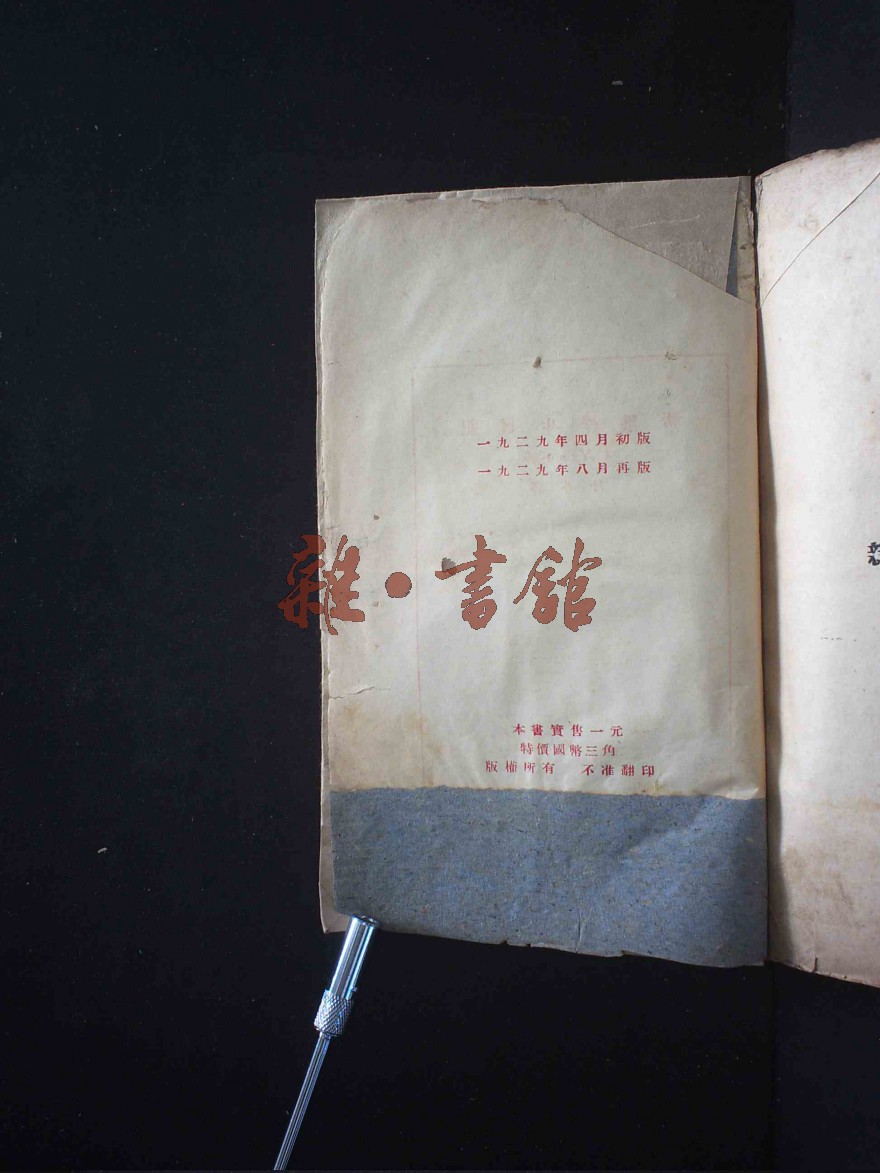 一九二九年四月初版
一九二九年八月再版
雜·書館
本書實售一元
特價國幣三角
版權所有　不准翻印